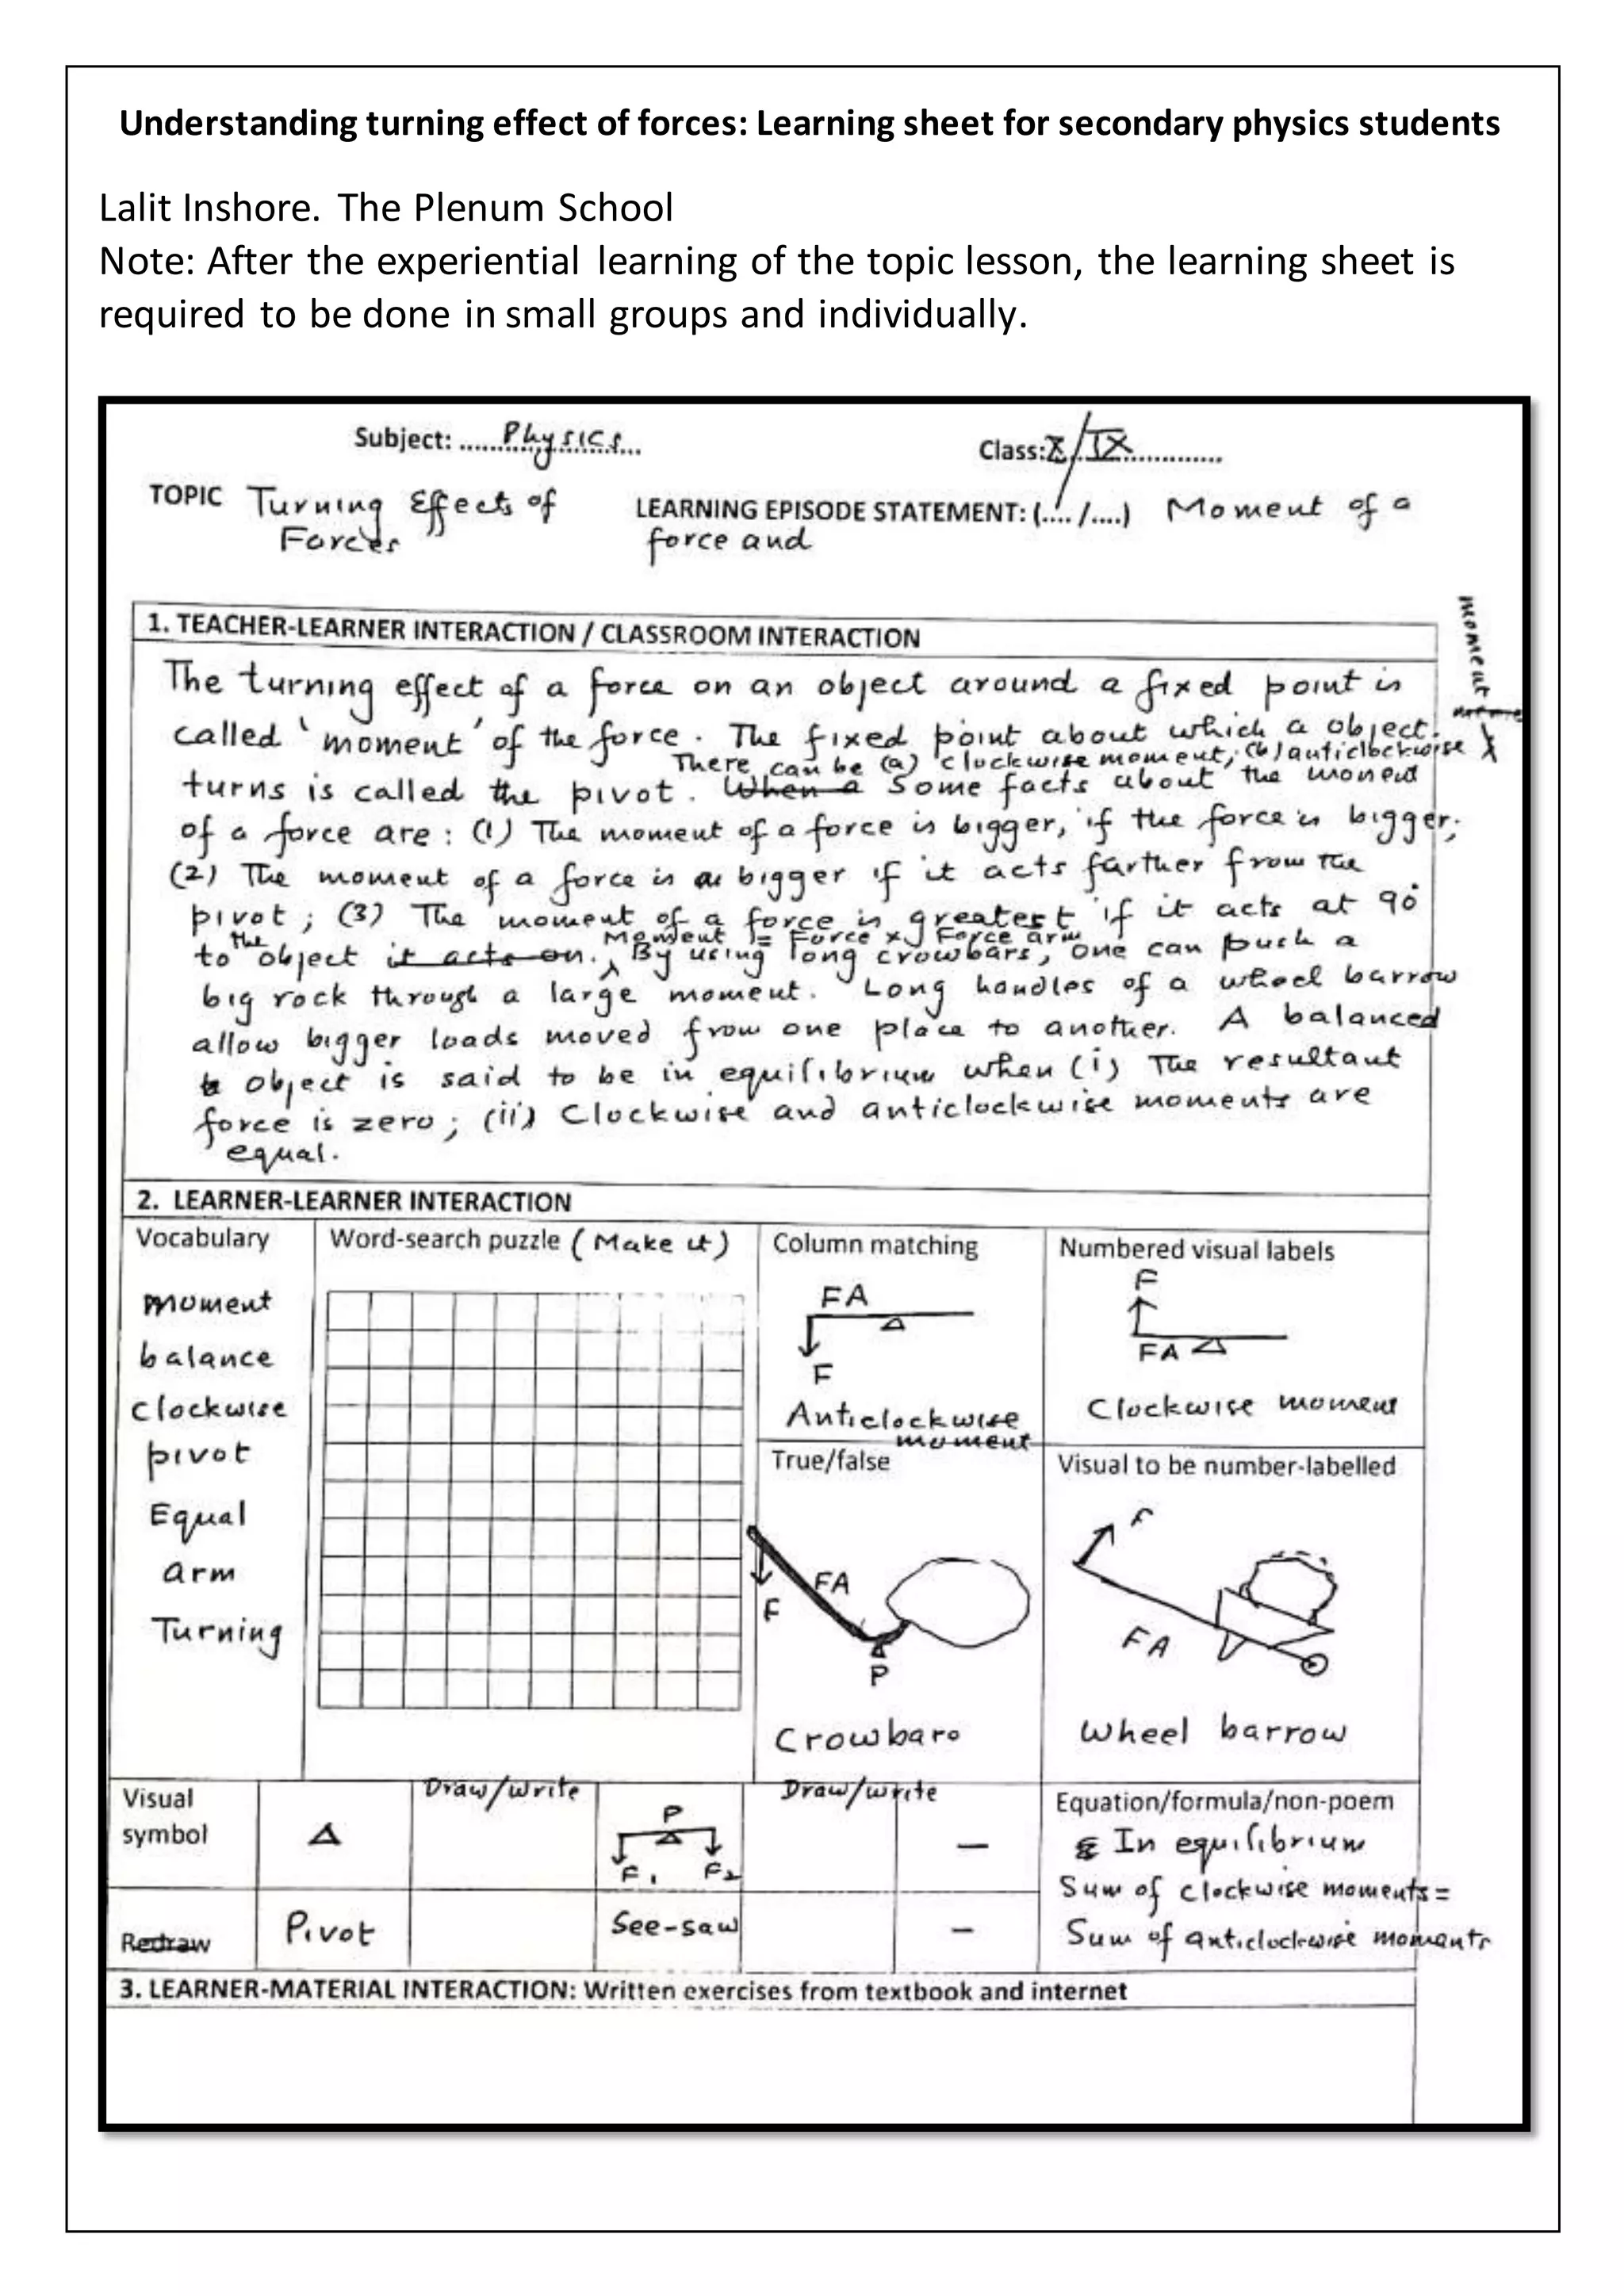 Understanding turning effect of forces: Learning sheet for secondary physics students
Lalit Inshore. The Plenum School
Note: After the experiential learning of the topic lesson, the learning sheet is
required to be done in small groups and individually.
Subject: ......Physics...
Class: X/IX..............
TOPIC Turning Effects of
Forces
LEARNING EPISODE STATEMENT: (..../....) Moment of a
force and
1. TEACHER-LEARNER INTERACTION / CLASSROOM INTERACTION
The turning effect of a force on an object around a fixed point is
called 'moment' of the force. The fixed point about which a object
There can be (a) clockwise moment; (b) anticlockwise
moment
turns is called the pivot. When a Some facts about the moment
of a force are: (1) The moment of a force is bigger, if the force is bigger;
(2) The moment of a force is bigger if it acts farther from the
pivot; (3) The moment of a force is greatest if it acts at 90°
Moment = Force x Force arm
to the object it acts on. By using long crowbars, one can push a
big rock through a large moment. Long handles of a wheel barrow
allow bigger loads moved from one place to another. A balanced
object is said to be in equilibrium when (i) The resultant
force is zero; (ii) Clockwise and anticlockwise moments are
equal.
2. LEARNER-LEARNER INTERACTION
Vocabulary
moment
balance
clockwise
pivot
Equal
arm
Turning
Word-search puzzle (Make it)
Column matching
FA
F
Anticlockwise
moment
Numbered visual labels
F
FA
Clockwise moment
True/false
FA
F
P
Crowbar
Visual to be number-labelled
F
FA
Wheel barrow
Visual
symbol
Δ
Draw/write
P
F1 F2
Draw/write
—
Redraw
Pivot
See-saw
—
Equation/formula/non-poem
In equilibrium
Sum of clockwise moments =
Sum of anticlockwise moments
3. LEARNER-MATERIAL INTERACTION: Written exercises from textbook and internet